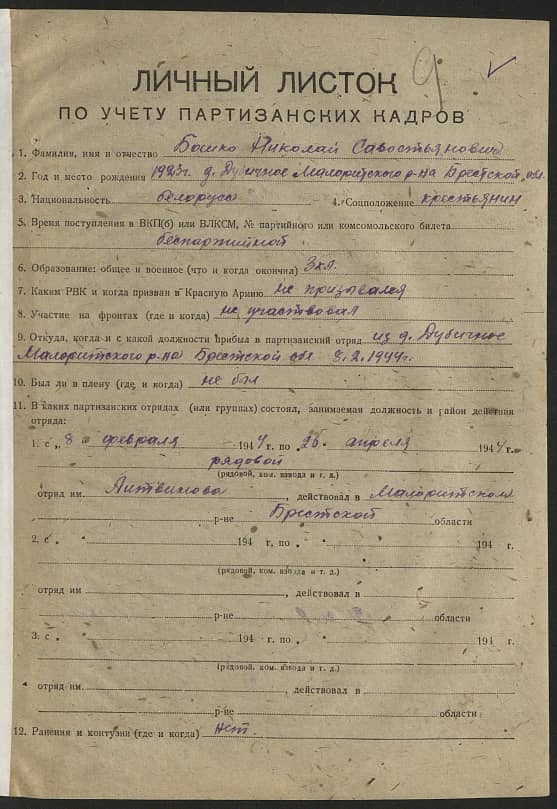 9 √
ЛИЧНЫЙ ЛИСТОК
ПО УЧЕТУ ПАРТИЗАНСКИХ КАДРОВ
1. Фамилия, имя и отчество Бошко Николай Савостьянович
2. Год и место рождения 1923г. д. Дубичное Малоритского р-на Брестской обл.
3. Национальность белорусс 4. Соцположение крестьянин
5. Время поступления в ВКП(б) или ВЛКСМ, № партийного или комсомольского билета
беспартийной
6. Образование: общее и военное (что и когда окончил) 3кл.
7. Каким РВК и когда призван в Красную Армию не призывался
8. Участие на фронтах (где и когда) не участвовал
9. Откуда, когда и с какой должности прибыл в партизанский отряд из д. Дубичное
Малоритского р-на Брестской обл. 8.2.1944г.
10. Был ли в плену (где и когда) не был
11. В каких партизанских отрядах (или группах) состоял, занимаемая должность и район действия
отряда:
1. с „8" февраля 1944 г. по „26" апреля 1944 г.
рядовой
(рядовой, ком. взвода и т. д.)
отряд им. Литвинова, действовал в Малоритском
р-не Брестской области
2. с " " 194 г, по " " 194 г.
(рядовой, ком. взвода и т. д.)
отряд им, действовал в
р-не области
3. с " " 194 г. по " " 194 г.
(рядовой, ком. взвода и т. д.)
отряд им., действовал в
р-не области
12. Ранения и контузии (где и когда) нет.